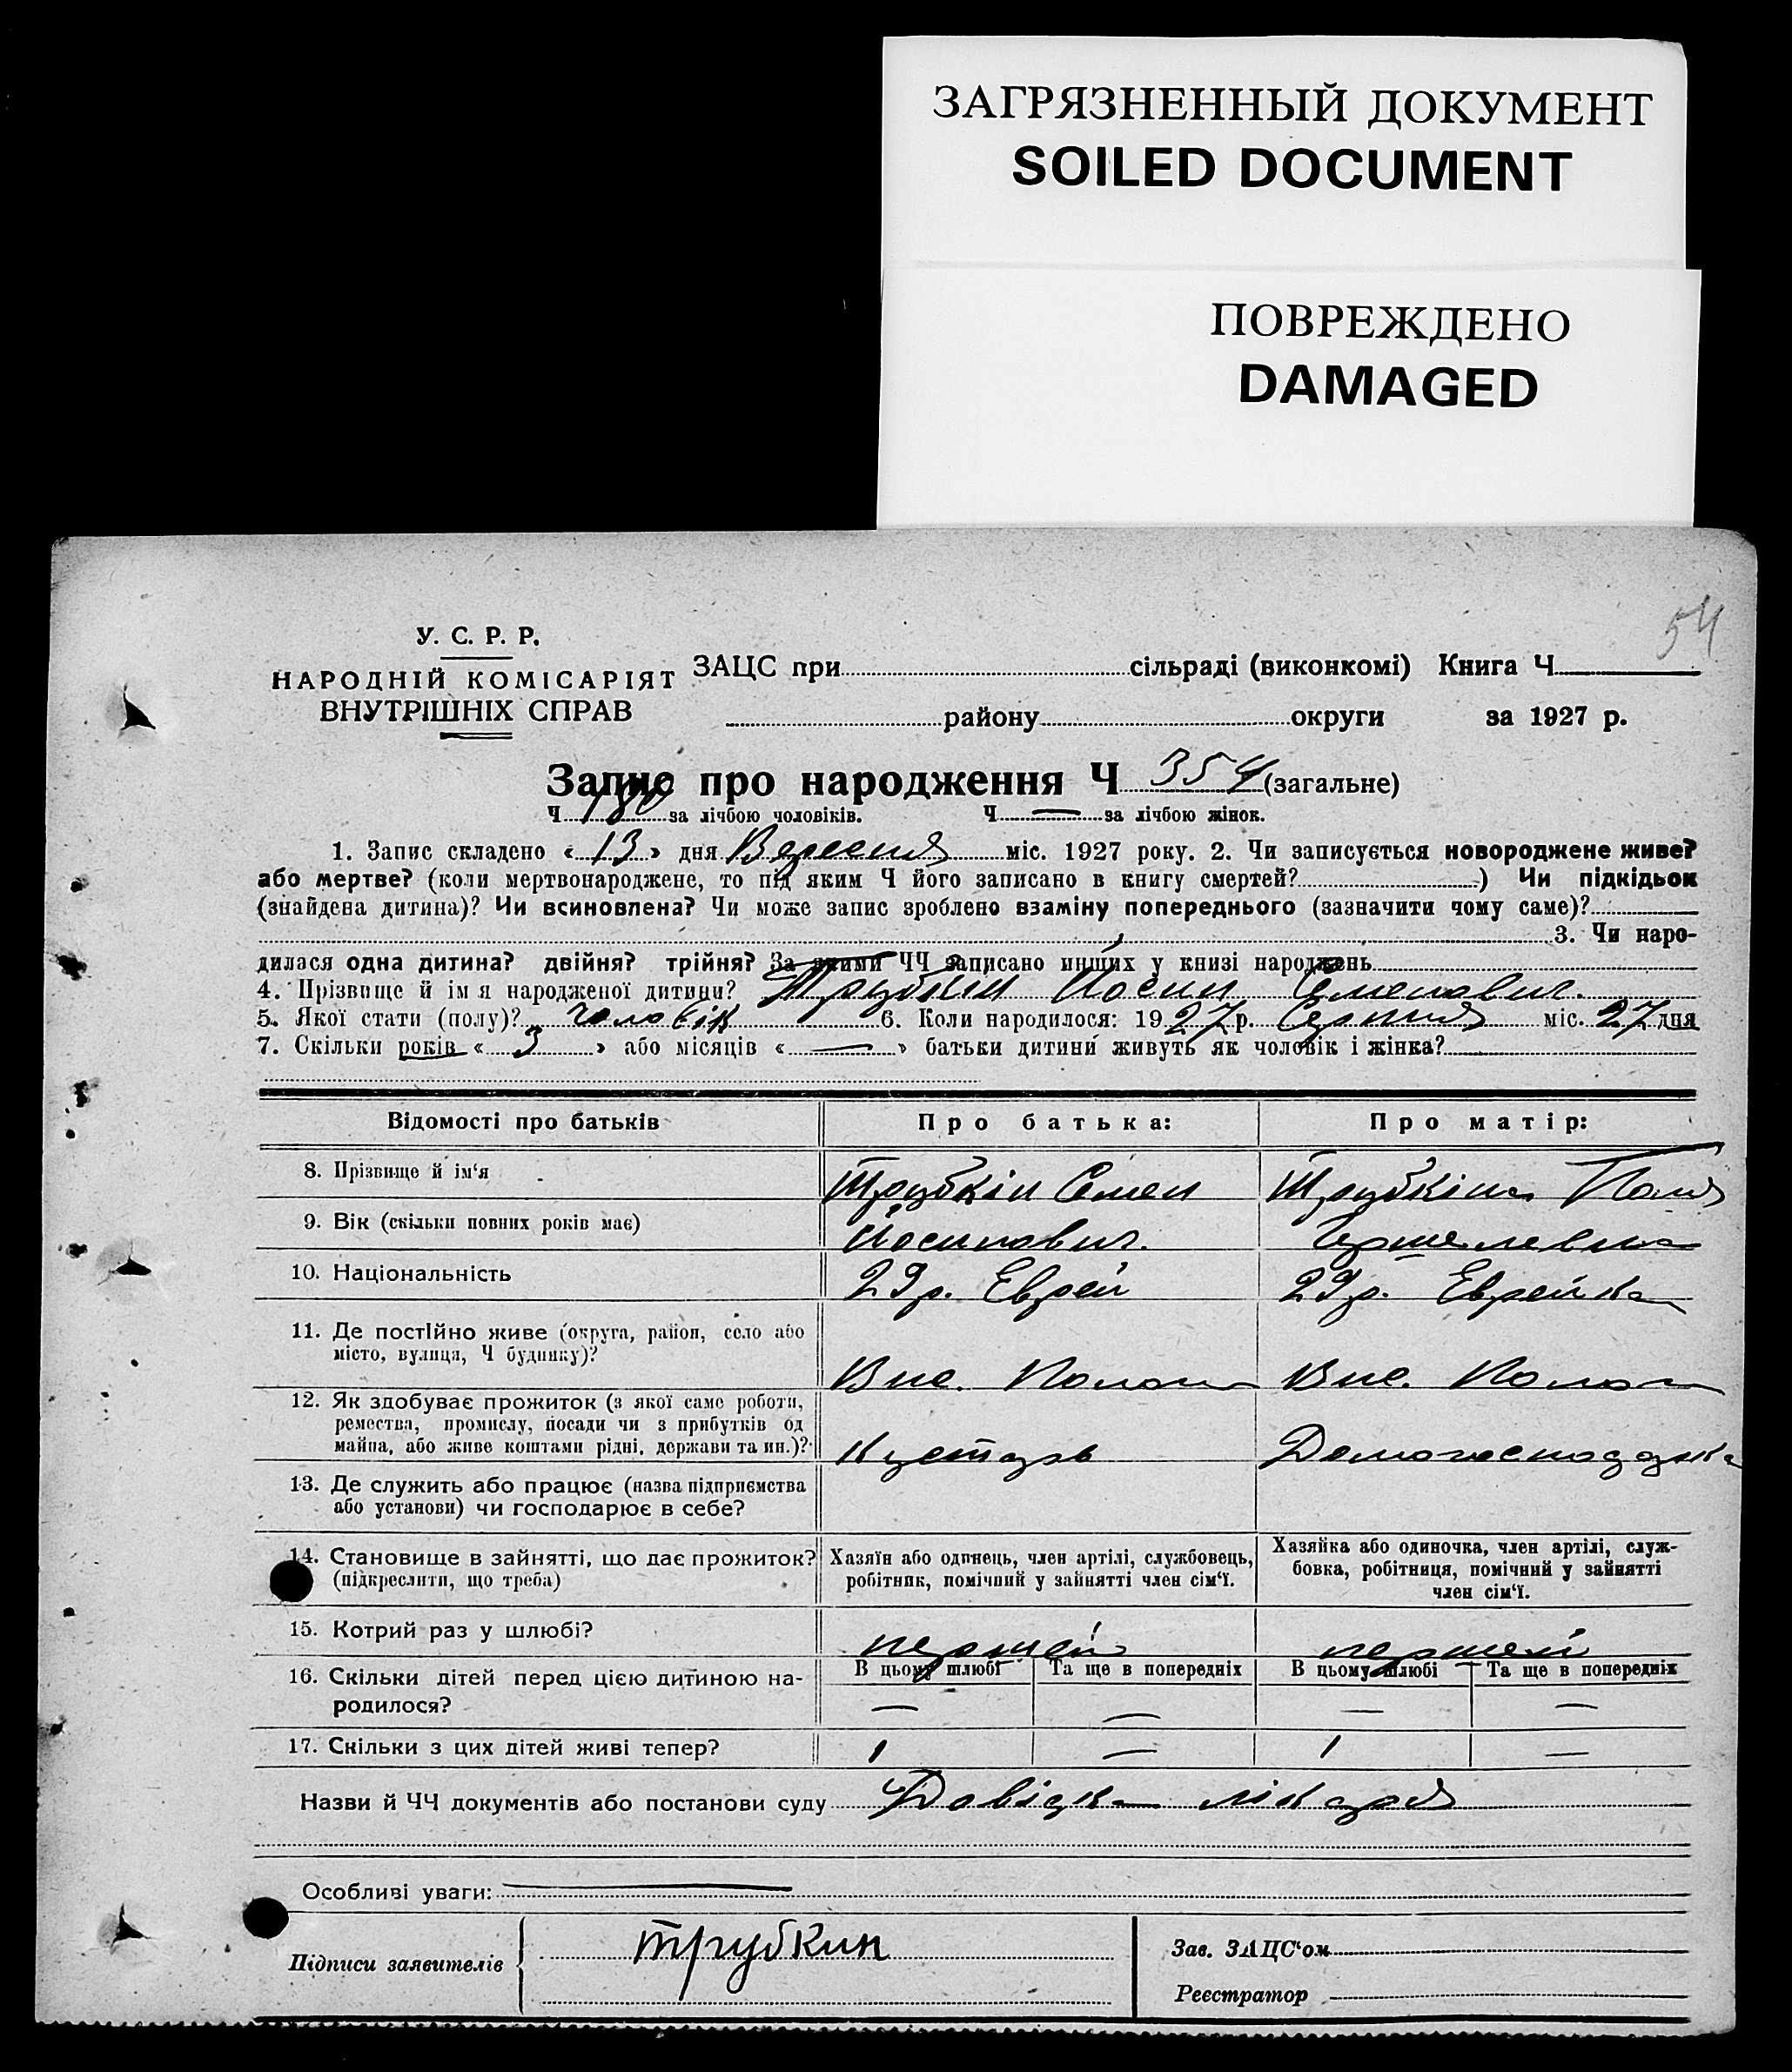 ЗАГРЯЗНЕННЫЙ ДОКУМЕНТ
SOILED DOCUMENT
ПОВРЕЖДЕНО
DAMAGED
54
У. С. Р. Р.
НАРОДНІЙ КОМІСАРІЯТ
ВНУТРІШНІХ СПРАВ
ЗАЦС при сільраді (виконкомі) Книга Ч
району округи за 1927 р.
Запис про народження Ч 354 (загальне)
Ч 180 за лічбою чоловіків. Ч — за лічбою жінок.
1. Запис складено « 13 » дня Вересня міс. 1927 року. 2. Чи записується новороджене живе?
або мертве? (коли мертвонароджене, то під яким Ч його записано в книгу смертей? ) Чи підкідьок
(знайдена дитина)? Чи всиновлена? Чи може запис зроблено взаміну попереднього (зазначити чому саме)?
3. Чи наро-
дилася одна дитина? двійня? трійня? За якими ЧЧ записано инших у книзі народжень
4. Прізвище й імя народженої дитини? Трубкін Йосип Семенович.
5. Якої стати (полу)? Чоловік 6. Коли народилося: 1927 р. Серпня міс. 27 дня
7. Скільки років « 3 » або місяців « — » батьки дитини живуть як чоловік і жінка?
Відомості про батьків Про батька: Про матір:
8. Прізвище й ім‘я Трубкін Семен Трубкіна Поля
9. Вік (скільки повних років має) Йосипович. Гершелевна
10. Національність 29 р. Еврей 29 р. Еврейка
11. Де постійно живе (округа, район, село або
місто, вулиця, Ч будинку)?
12. Як здобуває прожиток (з якої саме роботи,
ремества, промислу, посади чи з прибутків од
майна, або живе коштами рідні, держави та ин.)? Кустарь Домогосподарка
13. Де служить або працює (назва підприємства
або установи) чи господарює в себе?
14. Становище в зайнятті, що дає прожиток?
(підкреслити, що треба)
Хазяїн або одинець, член артілі, службовець,
робітник, помічний у зайнятті член сім‘ї.
Хазяйка або одиночка, член артілі, служ-
бовка, робітниця, помічний у зайнятті
член сім‘ї.
15. Котрий раз у шлюбі? перший перший
16. Скільки дітей перед цією дитиною на-
родилося?
В цьому шлюбі Та ще в попередніх В цьому шлюбі Та ще в попередніх
— — — —
17. Скільки з цих дітей живі тепер? 1 — 1 —
Назви й ЧЧ документів або постанови суду Довідка лікаря
Особливі уваги: —
Підписи заявителів Трубкин
Зав. ЗАЦС‘ом
Реєстратор